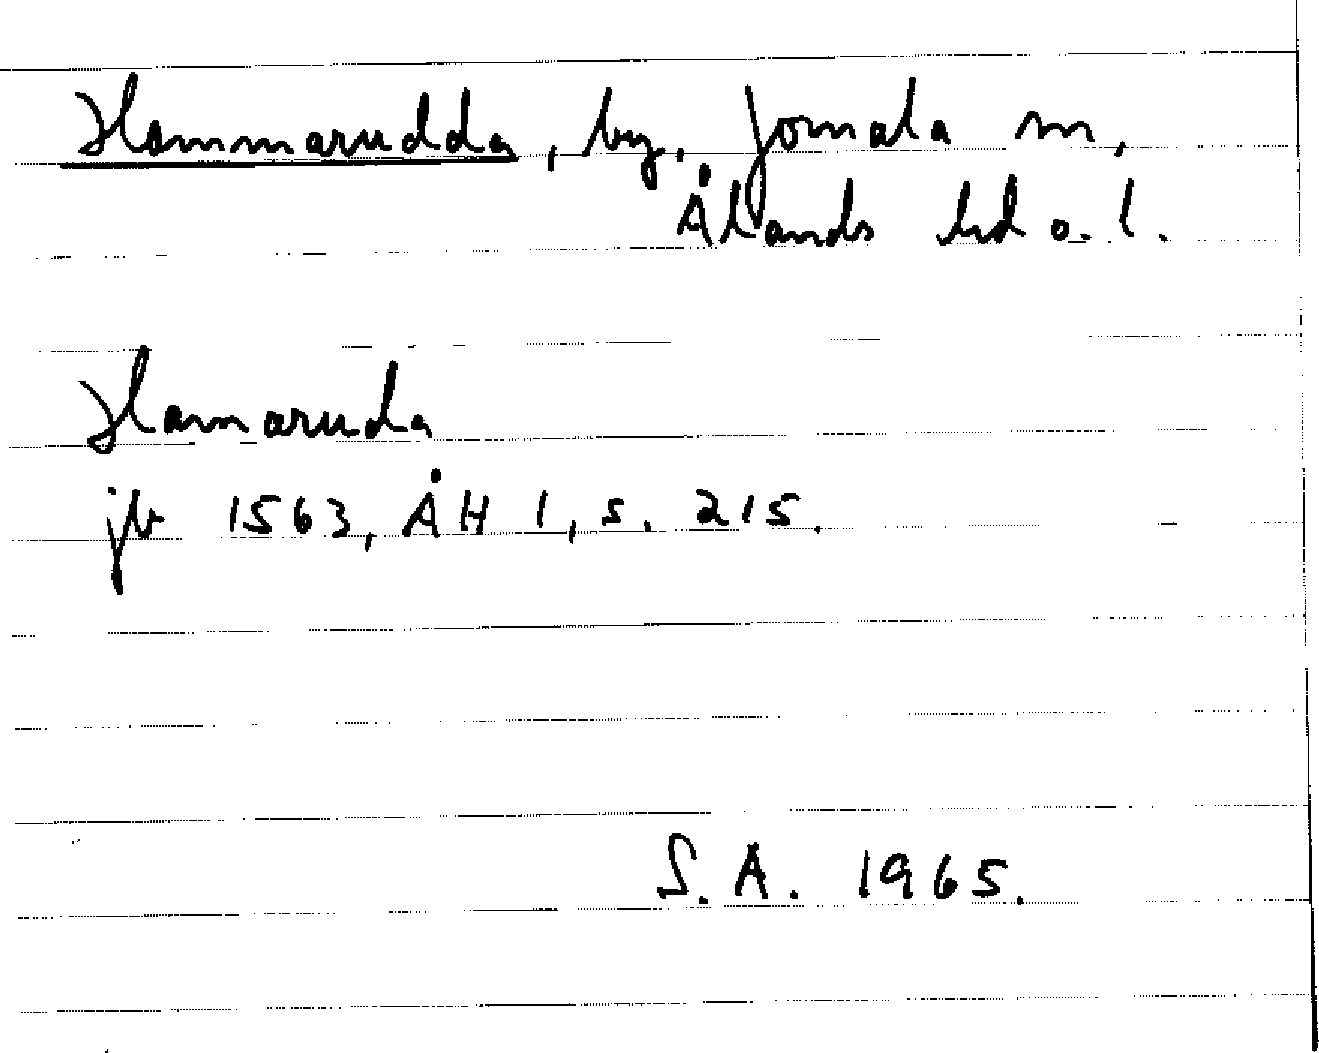 Hammarudda, by, Jomala sn,
Ålands hd o. l.
Hamaruda
jb 1563, ÅH 1, s. 215.
S.A. 1965.